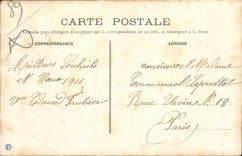 89
CARTE POSTALE
Certains pays étrangers n'acceptant pas la correspondance de ce côté, se renseigner à la Poste
CORRESPONDANCE
ADRESSE
Meilleurs Souhaits
1911
Edouard
Monsieur et Madame
Emmanuel
Rue 18
Paris